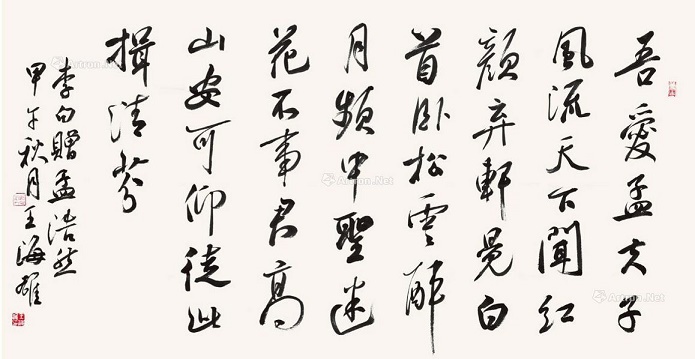 吾愛孟夫子
風流天下聞紅
顏弃軒冕白
首卧松雲醉
月頻中聖迷
花不事君高
山安可仰徒此
揖清芬
李白贈孟浩然
甲午秋月王海雄
Artron.Net
Artron.Net
Artron.Net